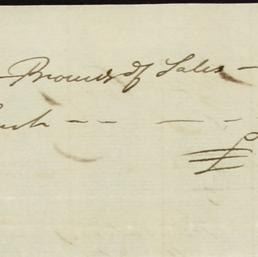 - Proceeds of Sales -
Cash - - - -
£